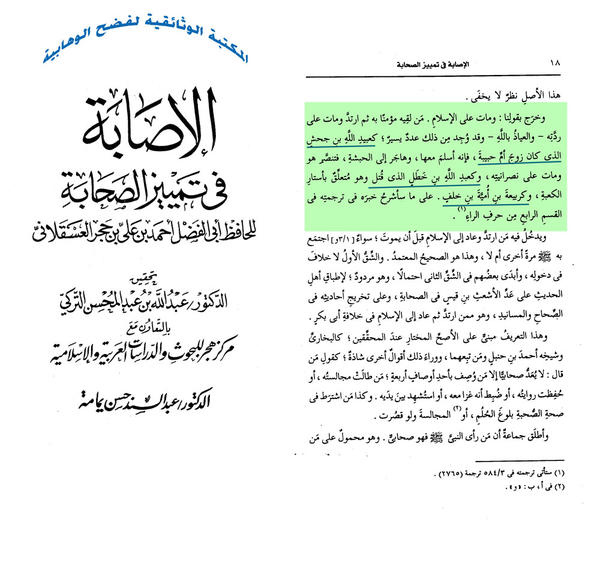 المكتبة الوثائقية لفضح الوهابية
الإصابة
في تمييز الصحابة
للحافظ أبي الفضل أحمد بن علي بن حجر العسقلاني
تحقيق
الدكتور/ عبد الله بن عبد المحسن التركي
بالتعاون مع
مركز هجر للبحوث والدراسات العربية والإسلامية
الدكتور/ عبد السند حسن يمامة
١٨
الإصابة فى تمييز الصحابة
هذا الأصلِ نظرٌ لا يخفَى .
وخرَج بقولِنا : ومات على الإسلامِ . مَن لقِيه مؤمنًا به ثم ارتدَّ ومات على
ردَّتِه – والعياذُ باللَّهِ – وقد وُجِد مِن ذلك عددٌ يسيرٌ ؛ كعبيدِ اللَّهِ بنِ جحشٍ
الذى كان زوجَ أمِّ حبيبةَ ، فإنه أسلمَ معها ، وهاجَر إلى الحبشةِ ، فتنصَّر هو
ومات على نصرانيتِه ، وكعبدِ اللَّهِ بنِ خَطَلٍ الذى قُتل وهو متعلِّقٌ بأستارِ
الكعبةِ ، وكربيعةَ بنِ أُميَّةَ بنِ خلفٍ . على ما سأشرحُ خبرَه فى ترجمتِه فى
القسمِ الرابعِ مِن حرفِ الراءِ(١) .
ويدخُلُ فيه مَن ارتدَّ وعاد إلى الإسلامِ قبلَ أن يموتَ ؛ سواءٌ [٣/١و] اجتمَع
به ﷺ مرةً أخرى أم لا ، وهذا هو الصحيحُ المعتمدُ . والشِّقُّ الأولُ لا خلافَ
فى دخولِه ، وأبدَى بعضُهم فى الشِّقِّ الثانى احتمالًا ، وهو مردودٌ ؛ لإطباقِ أهلِ
الحديثِ على عَدِّ الأشعثِ بنِ قيسٍ فى الصحابةِ ، وعلى تخريجِ أحاديثِه فى
الصِّحاحِ والمسانيدِ ، وهو ممن ارتدَّ ثم عاد إلى الإسلامِ فى خلافةِ أبى بكرٍ .
وهذا التعريفُ مبنىٌّ على الأصحِّ المختارِ عندَ المحقِّقين ؛ كالبخارىِّ
وشيخِه أحمدَ بنِ حنبلٍ ومَن تبِعهما ، ووراءَ ذلك أقوالٌ أخرى شاذةٌ ؛ كقولِ مَن
قال : لا يُعَدُّ صحابيًّا إلا مَن وُصِف بأحدِ أوصافٍ أربعةٍ ؛ مَن طالَتْ مجالستُه ، أو
حُفِظت روايتُه ، أو ضُبِط أنه غزا معه ، أو استشهد بينَ يدَيه . وكذا مَن اشترَط فى
صحةِ الصُّحبةِ بلوغَ الحُلُمِ ، أو(٢) المجالسةَ ولو قصُرت .
وأطلَق جماعةٌ أن مَن رأى النبىَّ ﷺ فهو صحابىٌّ . وهو محمولٌ على مَن
(١) ستأتى ترجمته فى ٥٨٤/٣ ترجمة (٢٧٦٥) .
(٢) فى أ ، ب : «و» .